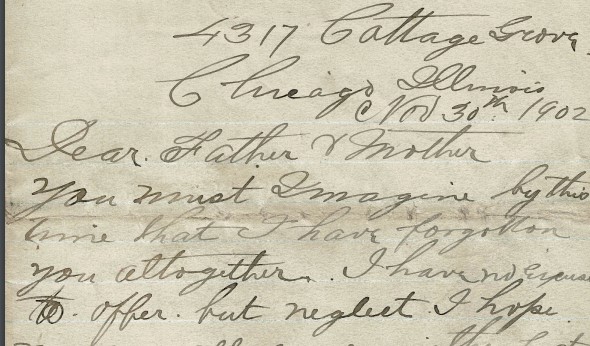 4317 Cottage Grove.
Chicago Illinois
Nov 30th 1902
Dear. Father & Mother
You must Imagine by this
time that I have forgotton
you altogether. I have no Excuse
to. offer. but neglect I hope.